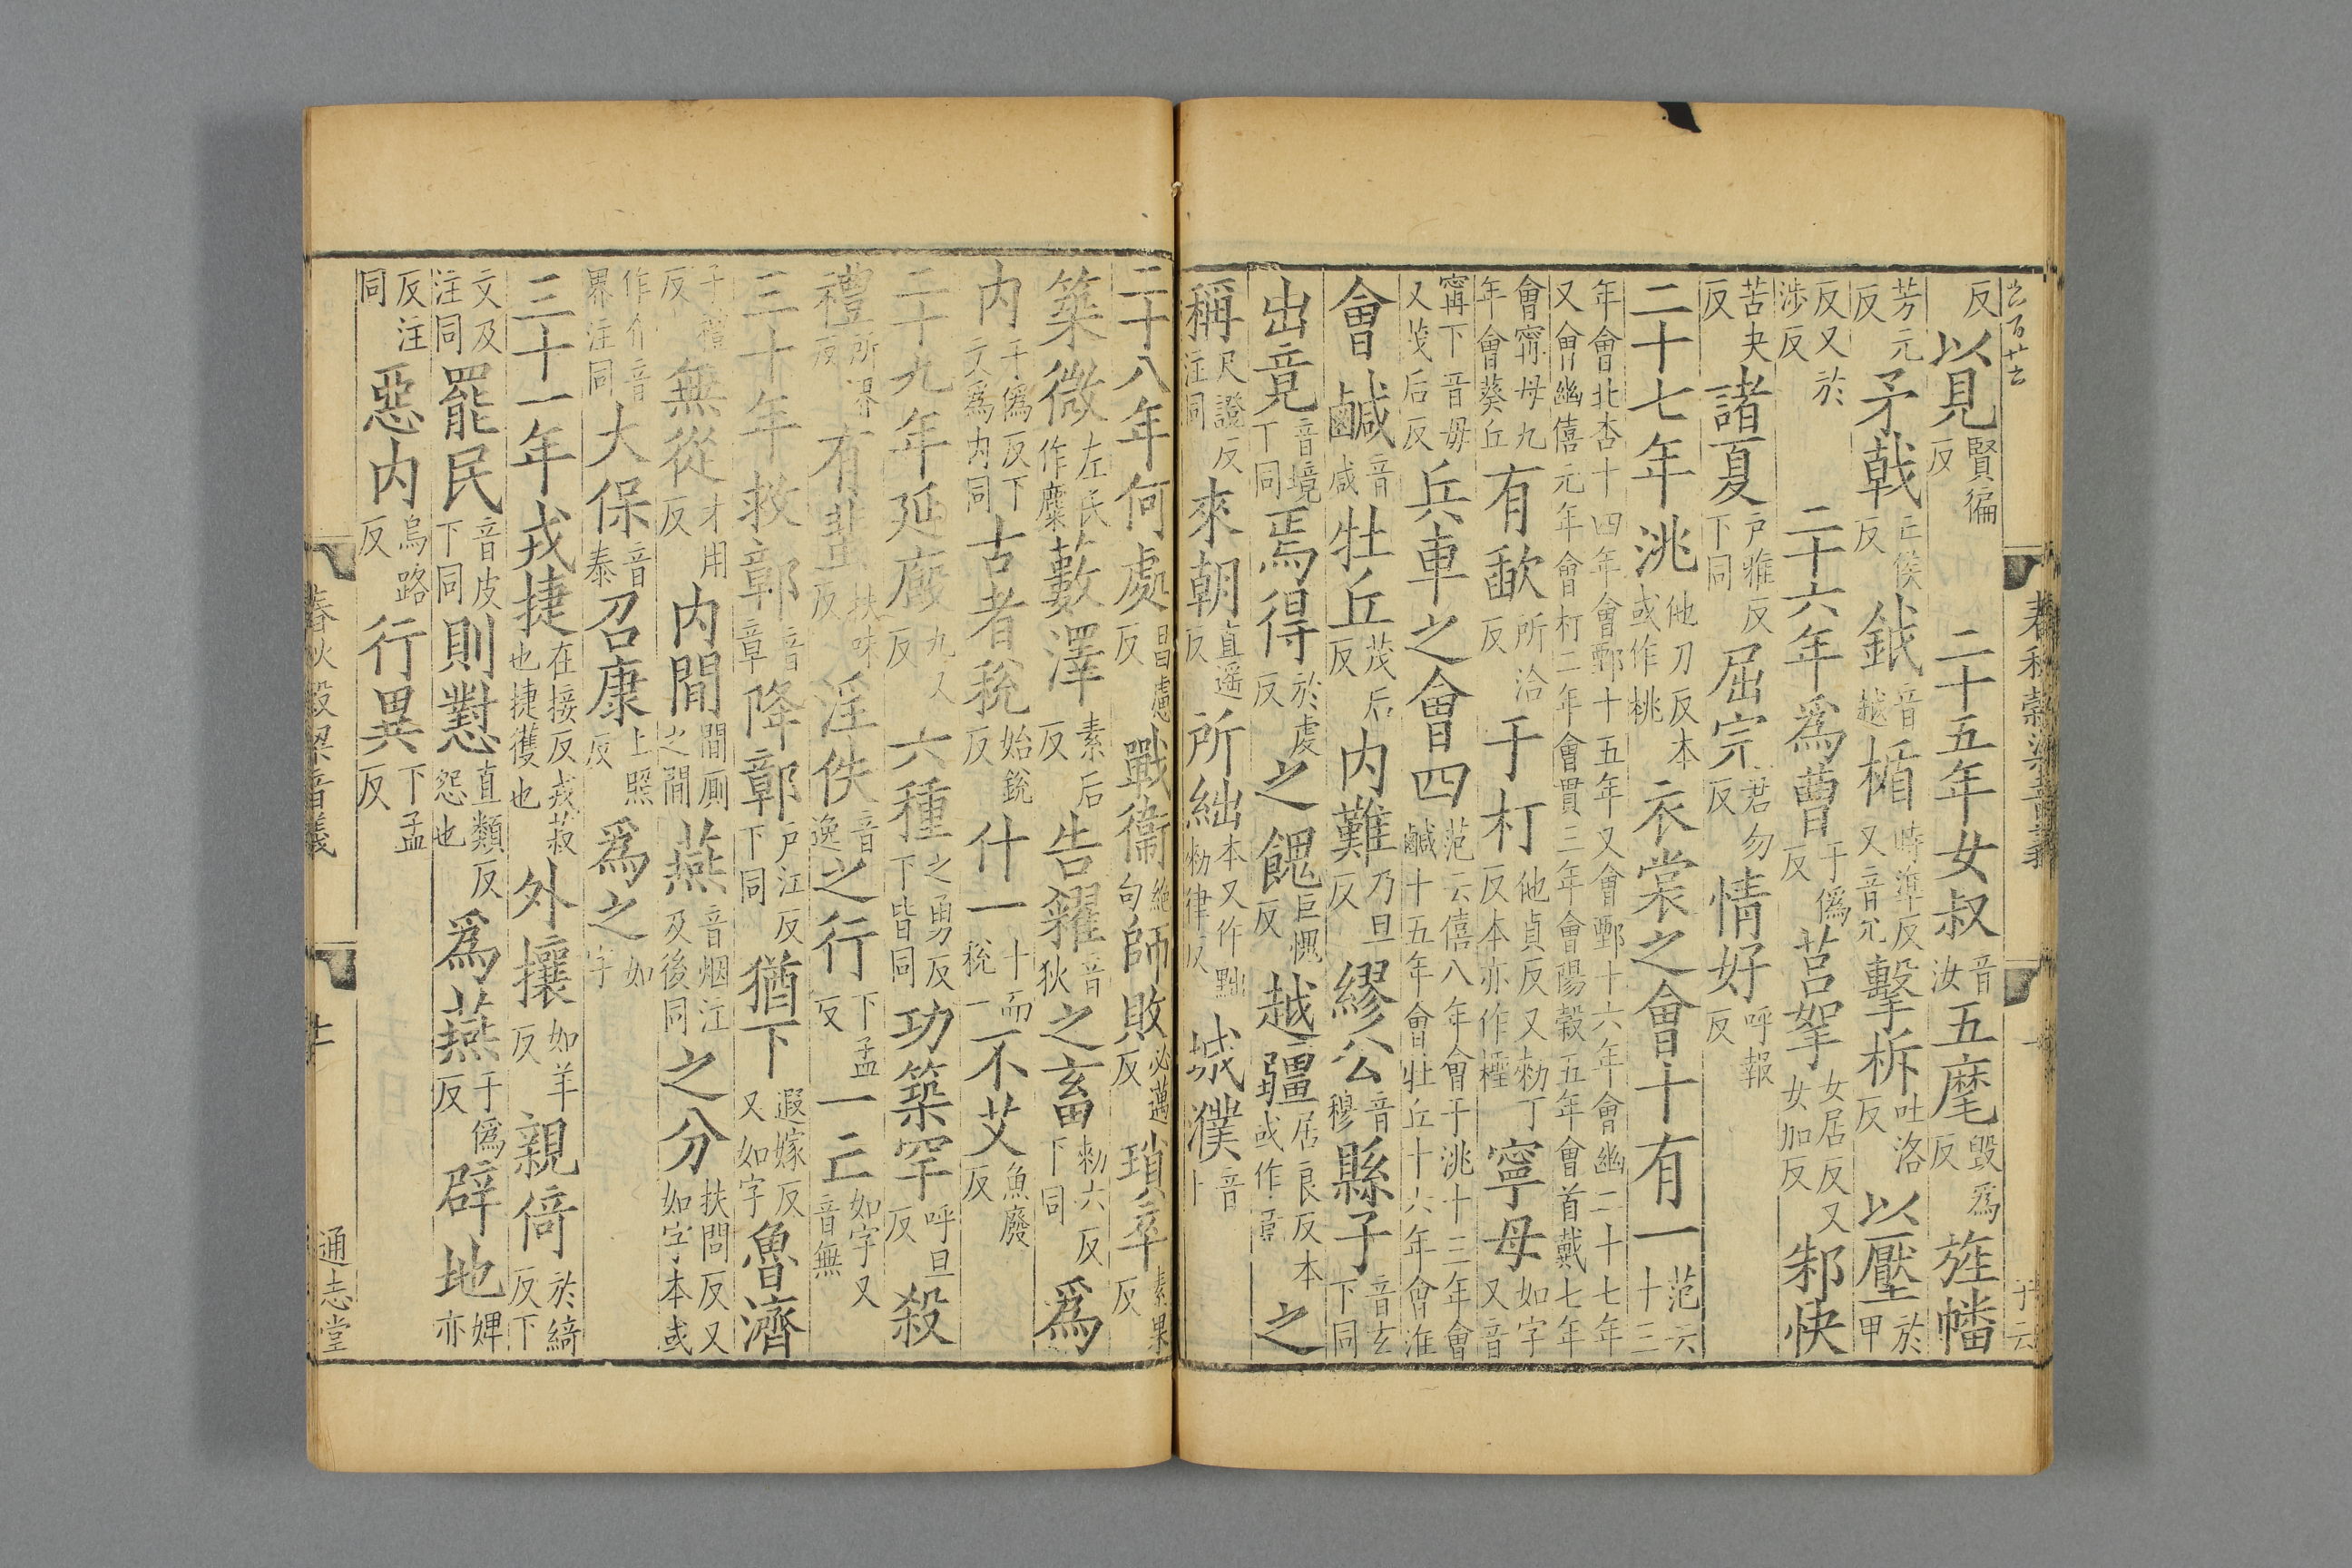 反以見賢徧反 二十五年女叔音汝五麾毀爲反旌幡
芳元反矛戟居俟反鉞音越楯時準反又音允擊柝吐洛反以壓於甲
反又於涉反 二十六年爲曹于僞反莒挐女居反又女加反邾快
苦夬反諸夏戶雅反下同屈完君勿反情好呼報反
二十七年洮他刀反本或作桃衣裳之會十有一范云十三
年會北杏十四年會鄄十五年又會鄄十六年會幽二十七年又會幽僖元年會朾二年會貫三年會陽穀五年會首戴七年
會甯母九年會葵丘有歃所洽反于朾他貞反又勑丁反本亦作檉寧母如字又音
甯下音毋又茂后反兵車之會四范云僖八年會于洮十三年會鹹十五年會牡丘十六年會淮
會鹹音咸牡丘茂后反內難乃旦反繆公音穆縣子音玄下同
出竟音境下同焉得於虔反之餽巨愧反越疆居良反本或作竟之
稱尺證反注同來朝直遥反所絀本又作黜勑律反城濮音卜
春秋穀梁音義
二十八年何處昌慮反戰衞絶句師敗必邁反瑣卒素果反
築微左氏作麋藪澤素后反告糴音狄之畜勑六反下同爲
内于僞反下文爲内同古者稅始銳反什一十而稅一不艾魚廢反
二十九年延廄九又反六種之勇反下皆同功築罕呼旦反殺
禮所界反有蜚扶味反淫佚音逸之行下孟反一亡如字又音無
三十年救鄣音章降鄣戶江反下同猶下遐嫁反又如字魯濟
子禮反無從才用反內間間厠之間燕音烟注及後同之分扶問反又如字本或
作介音界注同大保音泰召康上照反爲之如字
三十一年戎捷在接反戎菽也捷獲也外攘如羊反親倚於綺反下
文及注同罷民音皮下同則懟直類反怨也爲燕于僞反辟地婢亦
反注同惡內烏路反行異下孟反
春秋穀梁音義
通志堂